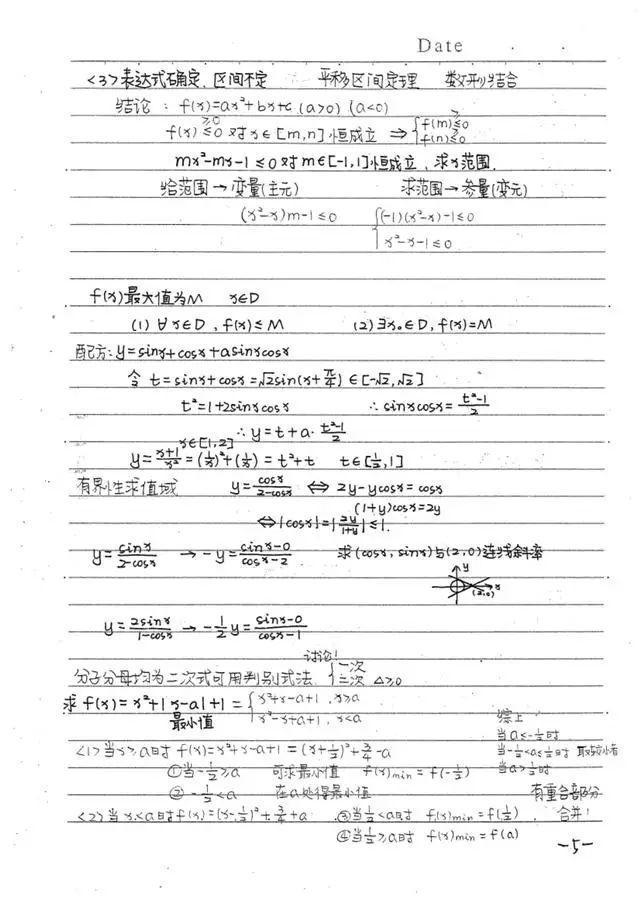 Date
<3>表达式确定,区间不定 平移区间定理 数形结合
结论：f(x)=ax²+bx+c (a>0) (a<0)
f(x)≥0 ≤0 对x∈[m,n]恒成立 ⇒ {f(m)≤0
f(n)≤0
mx²-mx-1≤0对m∈[-1,1]恒成立,求x范围.
给范围→变量(主元) 求范围→参量(变元)
(x²-x)m-1≤0 {(-1)(x²-x)-1≤0
x²-x-1≤0
f(x)最大值为M x∈D
(1) ∀x∈D, f(x)≤M (2)∃x₀∈D, f(x)=M
配方:y=sinx+cosx+asinxcosx
令 t=sinx+cosx=√2sin(x+π/4)∈[-√2,√2]
t²=1+2sinxcosx ∴sinxcosx=(t²-1)/2
∴y=t+a·(t²-1)/2
x∈[1,2]
y=(x+1)/x²=(1/x)²+(1/x)=t²+t t∈[1/2,1]
有界性求值域 y=cosx/(2-cosx) ⇔ 2y-ycosx=cosx
(1+y)cosx=2y
⇔|cosx|=|2y/(1+y)|≤1.
y=sinx/(2-cosx) →-y=(sinx-0)/(cosx-2) 求(cosx,sinx)与(2,0)连线斜率
y
x
(2,0)
y=2sinx/(1-cosx) →-1/2y=(sinx-0)/(cosx-1)
讨论!
分子分母均为二次式可用判别式法. {一次
二次 △≥0
求f(x)=x²+|x-a|+1={x²+x-a+1, x≥a
最小值 x²-x+a+1, x<a
综上
<1>当x≥a时 f(x)=x²+x-a+1=(x+1/2)²+3/4-a
当a≤-1/2时
当-1/2<a≤1/2时 取较小者
当a>1/2时
①当-1/2≥a 可求最小值 f(x)min=f(-1/2)
②-1/2<a 在a处得最小值 有重合部分
<2>当x<a时f(x)=(x-1/2)²+3/4+a ③当1/2<a时 f(x)min=f(1/2), 合并!
④当1/2≥a时 f(x)min=f(a)
-5-